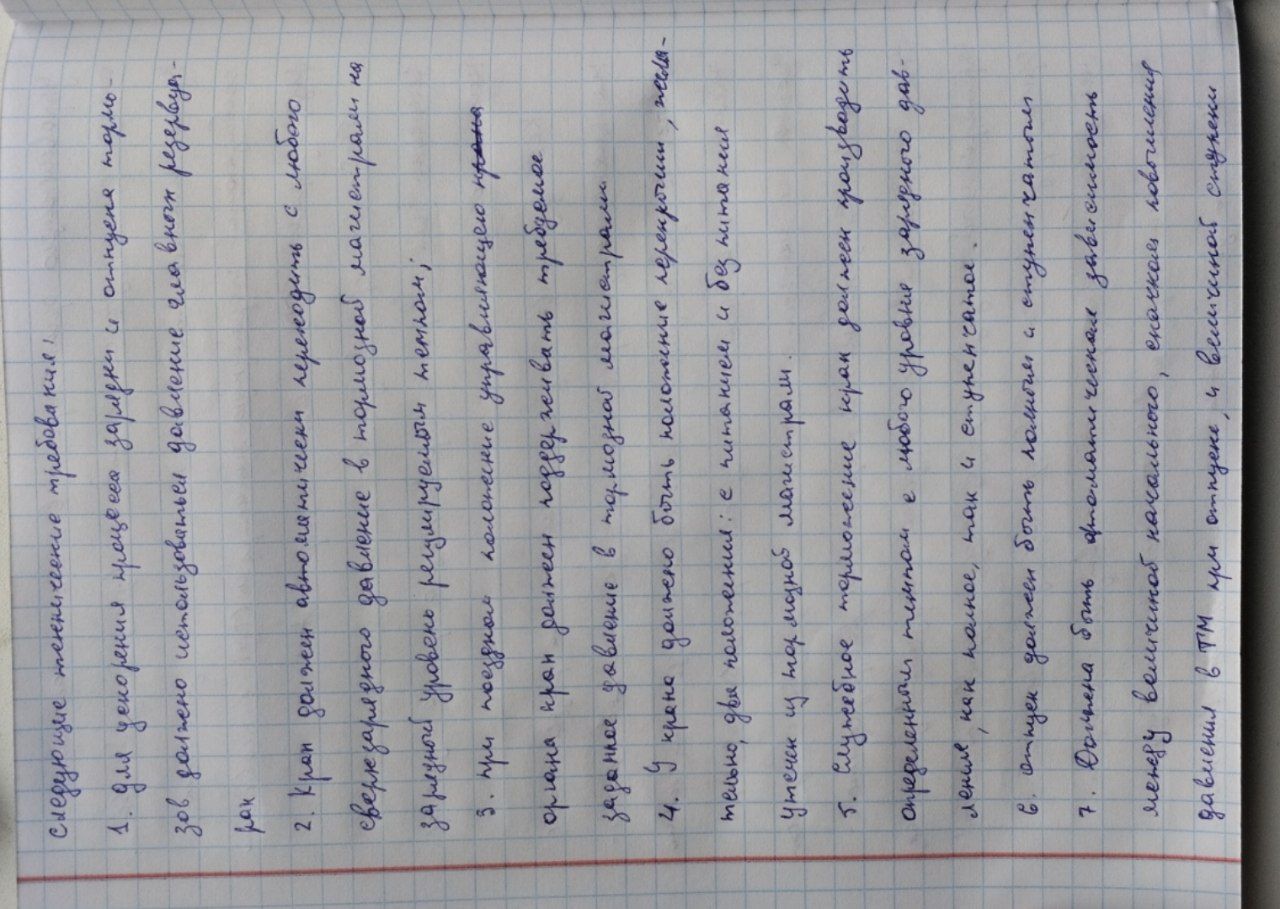 Следующие технические требования:
1. Для ускорения процесса зарядки и отпуска тормо-
зов должно использоваться давление главных резервуа-
ров
2. Кран должен автоматически переходить с любого
сверхзарядного давление в тормозной магистрали на
зарядный уровень регулируемым темпом;
3. при поездном положение управляющего крана
органа кран должен поддерживать требуемое
заданное давление в тормозной магистрали
4. У крана должно быть положение перекрыши, жела-
тельно, два положения: с питанием и без питания
утечек из тормозной магистрали.
5. Служебное торможение кран должен производить
определенным темпом с любого уровня зарядного дав-
ления, как полное, так и ступенчатое.
6. отпуск должен быть полным и ступенчатым
7. Должна быть автоматическая зависимость
между величиной начального, скачком повышения
давления в ТМ при отпуске, и величиной ступени